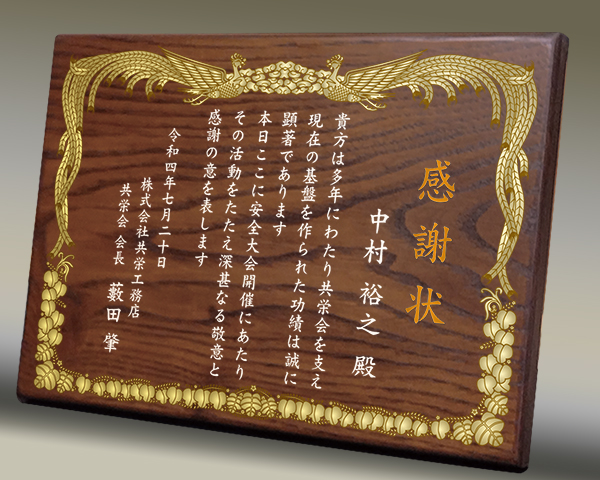 感謝状
中村 裕之 殿
貴方は多年にわたり共栄会を支え
現在の基盤を作られた功績は誠に
顕著であります
本日ここに安全大会開催にあたり
その活動をたたえ深甚なる敬意と
感謝の意を表します
令和四年七月二十日
株式会社共栄工務店
共栄会 会長 藪田 肇